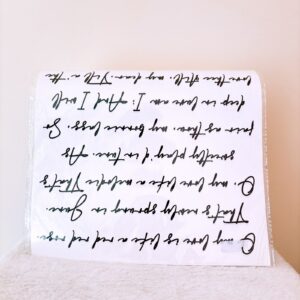 O, my love is like a red, red rose,
That's newly sprung in June.
O, my love like a melodie That's
sweetly play'd in tune. As
fair as thou, my bonnie lass. So
deep in love am I: And I will
love thee still, my dear, Till a' the